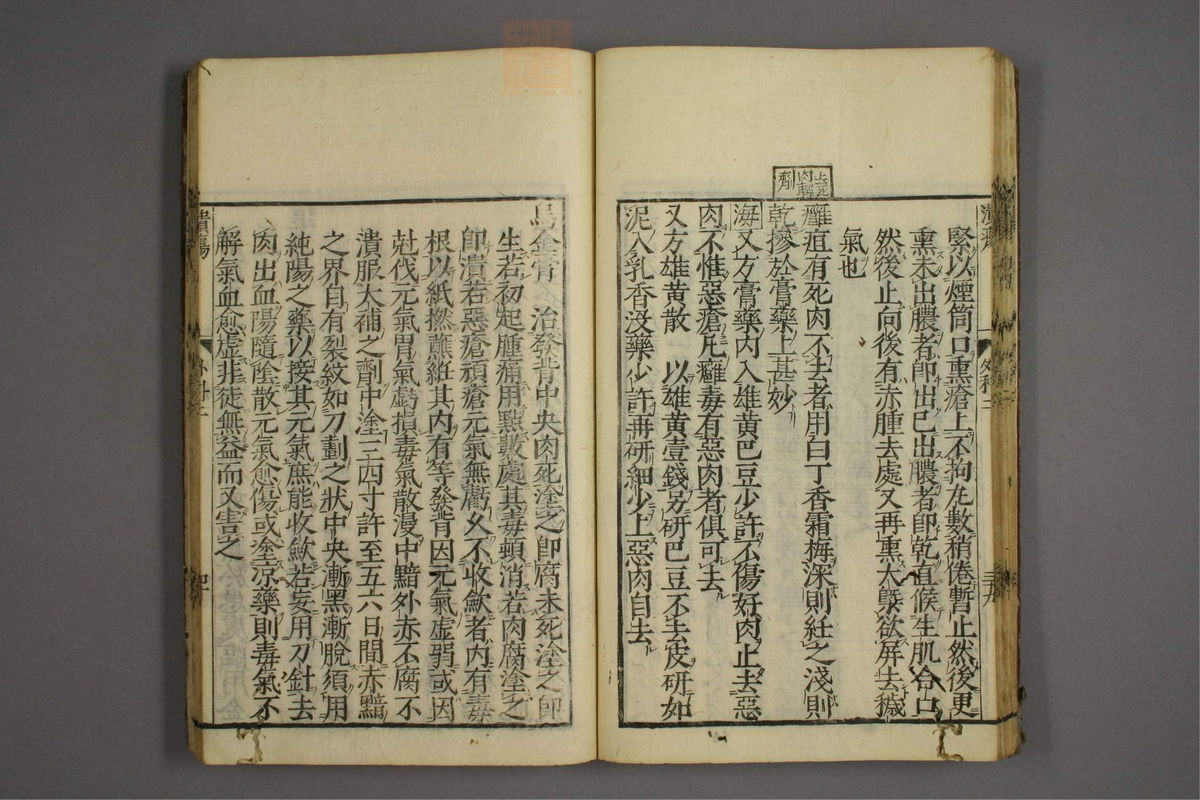 緊以煙筒口熏瘡上不拘尨數稍倦暫止然後更
熏未出膿者卽出已出膿者卽乾直候生肌合口
然後止向後有赤腫去處又再熏大槩欲屏去穢
氣也
癰疽有死肉不去者用白丁香霜梅深則紝之淺則
乾摻於膏藥上甚妙
海又方膏藥內入雄黃巴豆少許不傷好肉止去惡
肉不惟惡瘡凡癰毒有惡肉者俱可去
又方雄黃散 以雄黃壹錢另研巴豆不去皮研如
泥入乳香沒藥少許再研細少上惡肉自去
烏金膏 治發背中央肉死塗之卽腐未死塗之卽
生若初起腫痛用點數處其毒頓消若肉腐塗之
卽潰若惡瘡頑瘡元氣無虧久不收歛者內有毒
根以紙撚蘸紝其內有等發背因元氣虛弱或因
尅伐元氣胃氣虧損毒氣散漫中黯外赤不腐不
潰服大補之劑中塗三四寸許至五六日間赤黯
之界自有裂紋如刀劃之狀中央漸黑漸脫須用
純陽之藥以接其元氣庶能收歛若妄用刀針去
肉出血陽隨陰散元氣愈傷或塗凉藥則毒氣不
解氣血愈虛非徒無益而又害之
潰瘍
外科二
四十